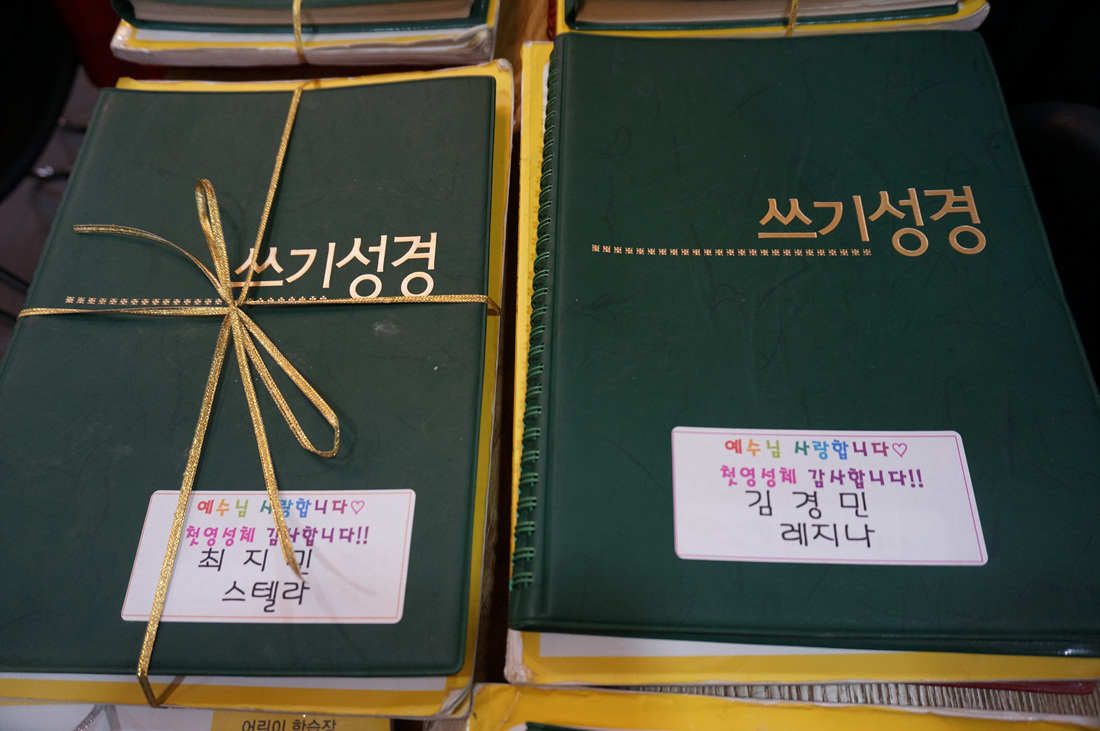 쓰기성경
예수님 사랑합니다♡
첫영성체 감사합니다!!
최 지 민
스텔라
쓰기성경
예수님 사랑합니다♡
첫영성체 감사합니다!!
김 경 민
레지나
어린이 학습장